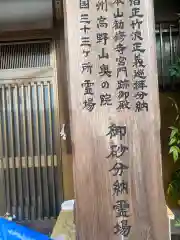 竹浪正義巡拝分納
本山勧修寺宮門跡御殿
州高野山奥の院
国三十三ヶ所霊場
御砂分納霊場